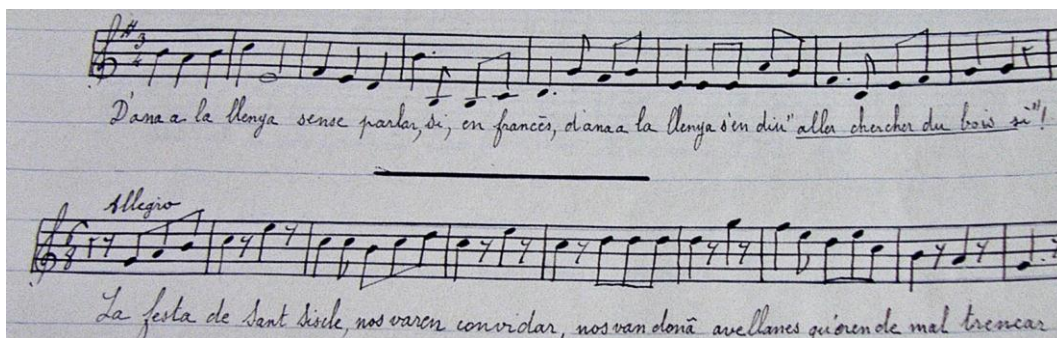 3/4
D'ana a la llenya sense parlar, si, en francês, d'ana a la llenya s'en diu "aller chercher du bois si"!
Allegro
6/8
La festa de Sant Siscle, nos varen convidar, nos van donâ avellanes qu'eren de mal trencar